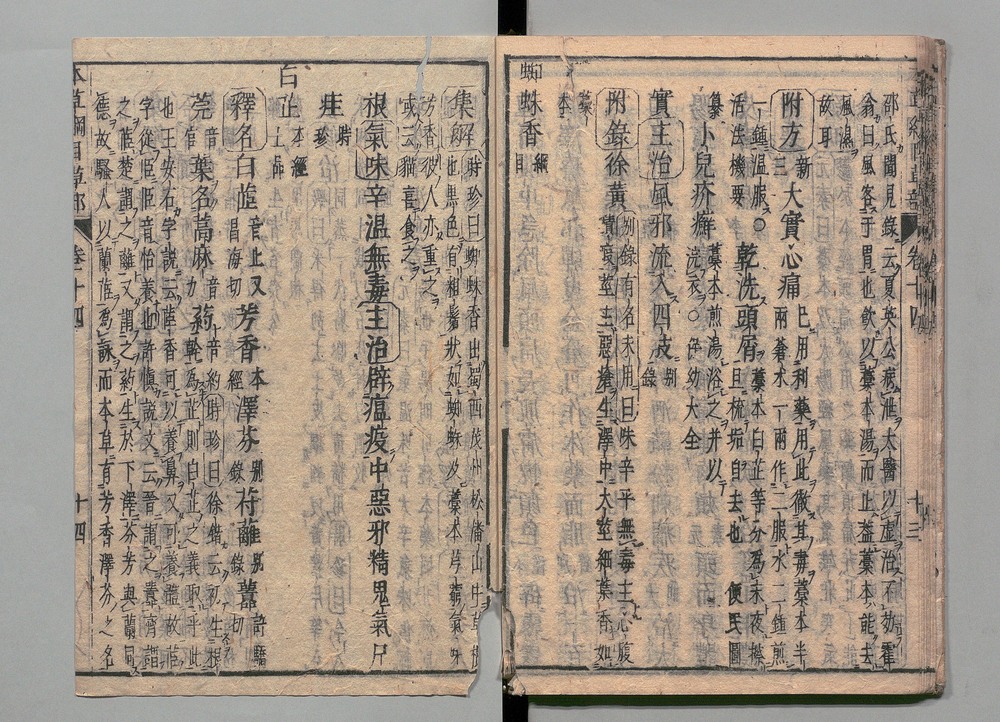 邵氏聞見錄云夏英公病泄太醫以虛治不効霍
翁曰風客于胃也飮以藁本湯而止蓋藁本能去
風濕故耳
附方新三 大實心痛 已用利藥用此徹其毒藁本半
一鍾溫服○ 兩蒼朮一兩作二服水二鍾煎
活法機要 乾洗頭屑 藁本白芷等分爲末夜擦
旦梳垢自去也 便民圖
纂 小兒疥癬 藁本煎湯浴之并以
浣衣○保幼大全
實主治風邪流入四肢 別錄
附錄徐黃 別錄有名未用曰味辛平無毒主心腹
積瘕莖主惡瘡生澤中大莖細葉香如
藁本
蜘蛛香 綱目
集解 時珍曰蜘蛛香出蜀西茂州松潘山中草根
也黑色有粗鬚狀如蜘蛛及藁本芎藭氣味
芳香彼人亦重之
或云猫喜食之
根氣味辛溫無毒主治辟瘟疫中惡邪精鬼氣尸
疰 時珍
白芷 本經上品
釋名白茝 音止又昌海切 芳香 本經 澤芬 別錄 苻蘺 別錄 䖀 許驕切
莞 音官 葉名蒚麻 音力 葯 音約 時珍曰徐鍇云初生根
幹爲芷則白芷之義取乎此
也王安石字說云茝香可以養鼻又可養體故茝
字從𦣝𦣝音怡養也許愼說文云晉謂之䖀齊謂
之茝楚謂之蘺又謂之葯生於下澤芬芳與蘭同
德故騷人以蘭茝爲詠而本草有芳香澤芬之名
本草綱目草部 卷十四 十四
卷十四 十三